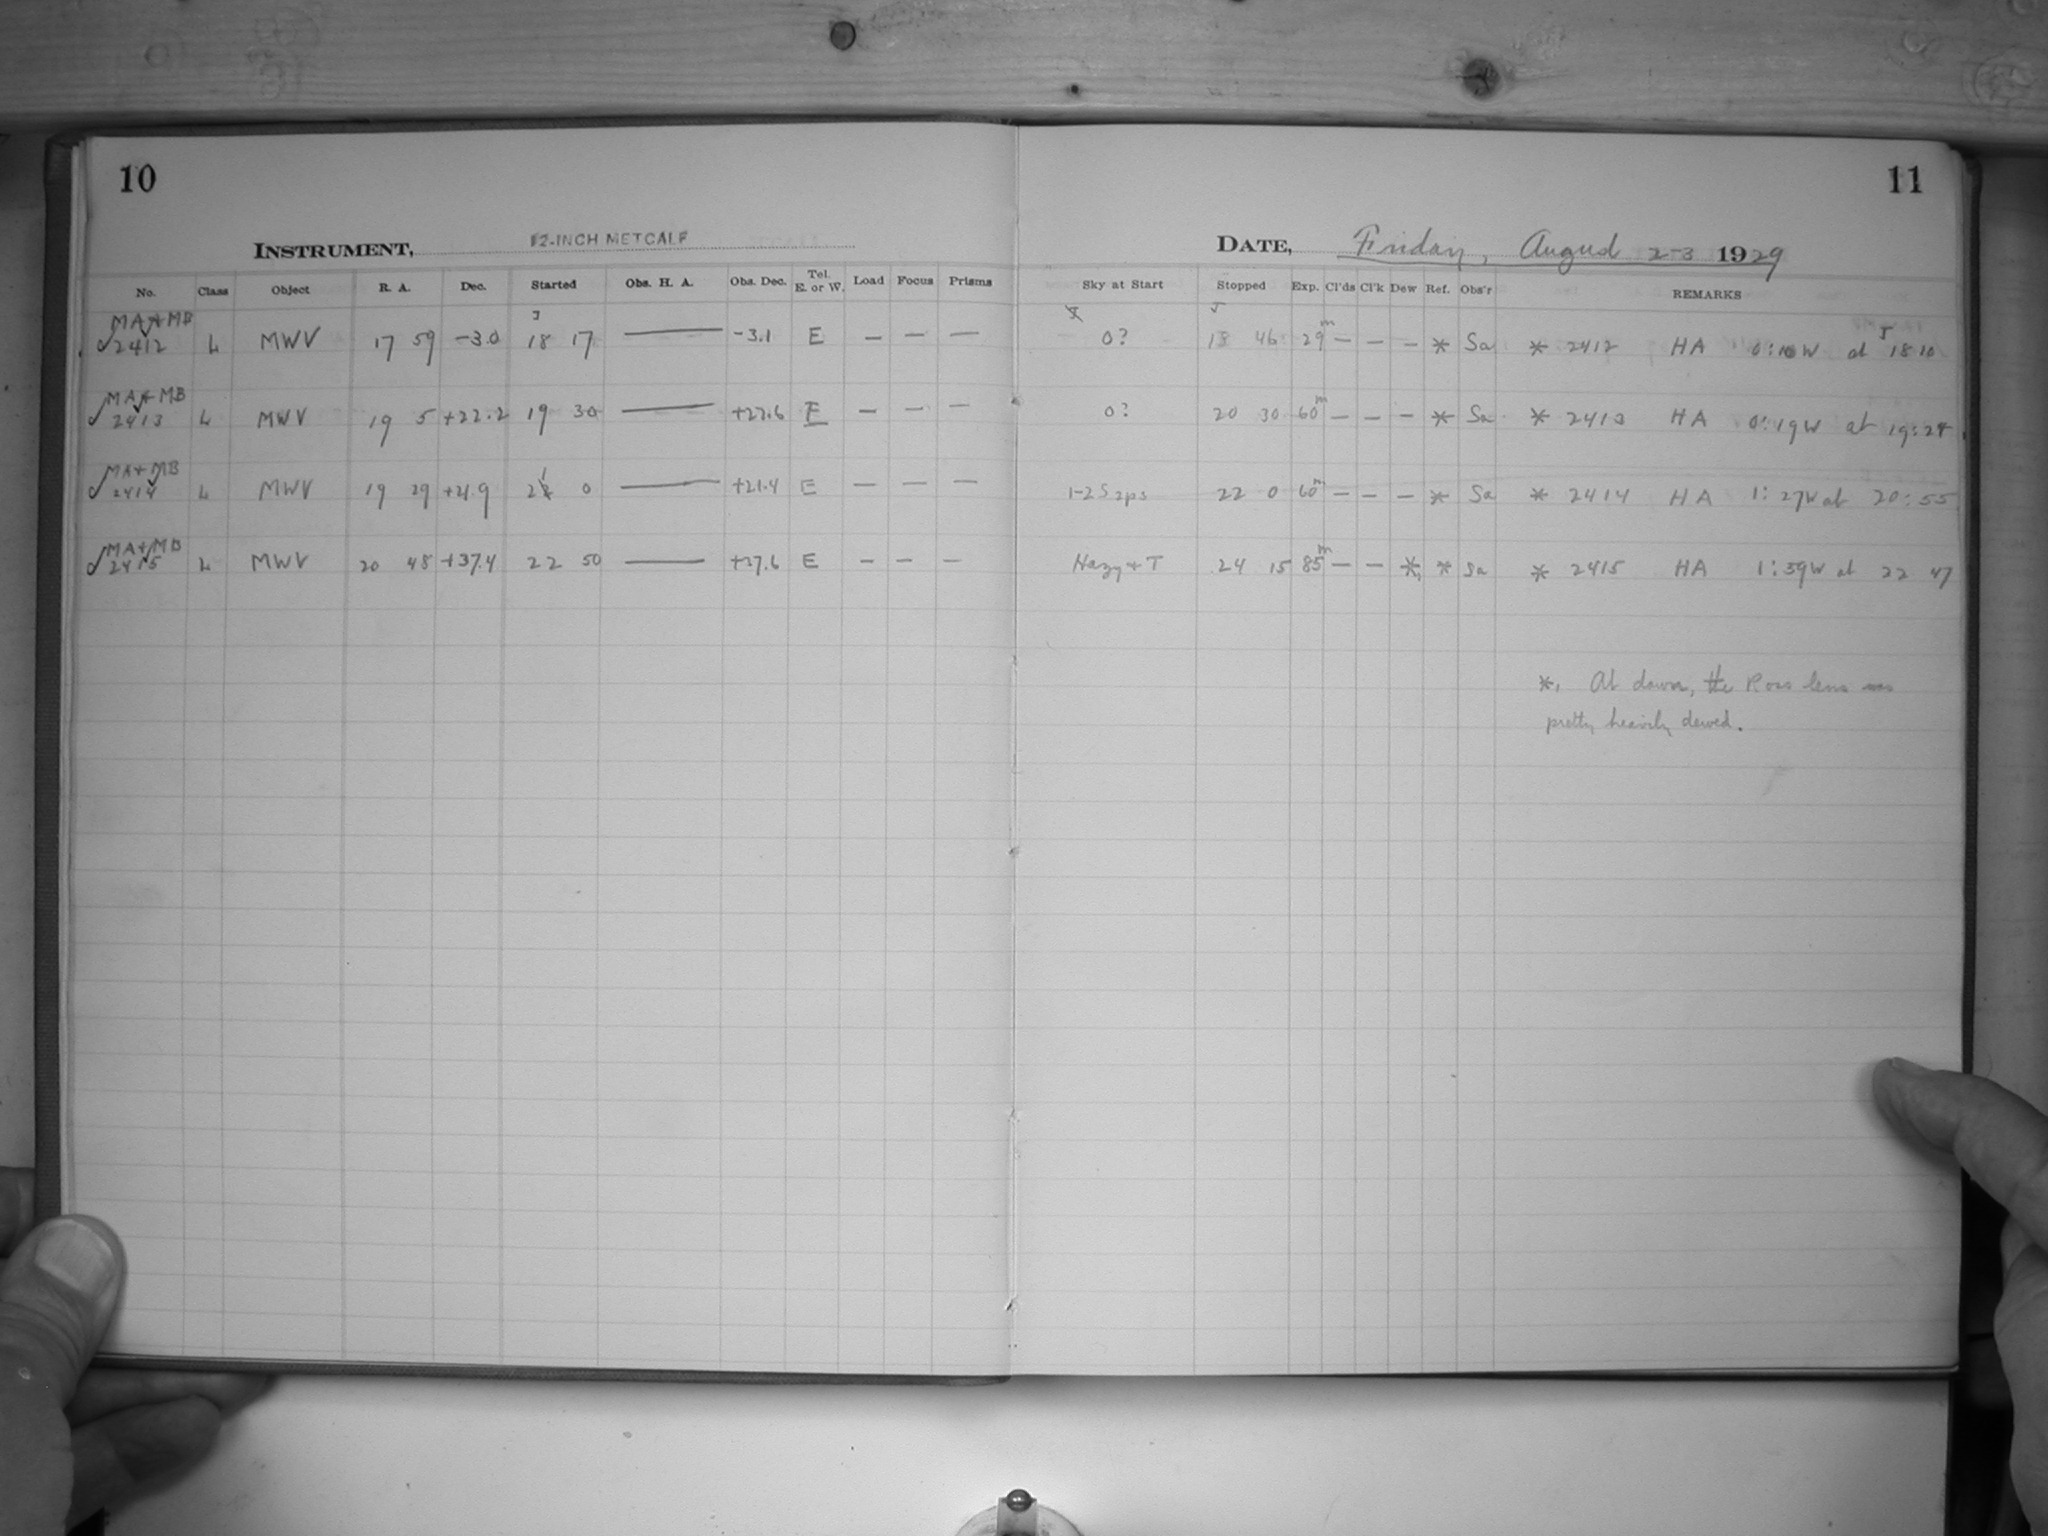 10
11
INSTRUMENT, 12-INCH METCALF
DATE, Friday, August 2-3 1929
No. Class Object R. A. Dec. Started Obs. H. A. Obs. Dec. Tel. E. or W. Load Focus Prisms Sky at Start Stopped Exp. Cl'ds Cl'k Dew Ref. Obs'r REMARKS
MA+MB
√2412 L MWV 17 59 -3.0 18 17 — -3.1 E — — — 0? 18 46 29m — — — * Sa * 2412 HA 0:10W at 18 10
MA+MB
√2413 L MWV 19 5 +22.2 19 30 — +22.6 E — — — 0? 20 30 60m — — — * Sa * 2413 HA 0:19W at 19:24
MA+MB
√2414 L MWV 19 29 +21.9 21 0 — +21.4 E — — — 1-2 S2ps 22 0 60m — — — * Sa * 2414 HA 1:27W at 20:55
MA+MB
√2415 L MWV 20 48 +37.4 22 50 — +37.6 E — — — Hazy + T 24 15 85m — — *1 * Sa * 2415 HA 1:59W at 22 47
*1 At dawn, the Ross lens was
pretty heavily dewed.